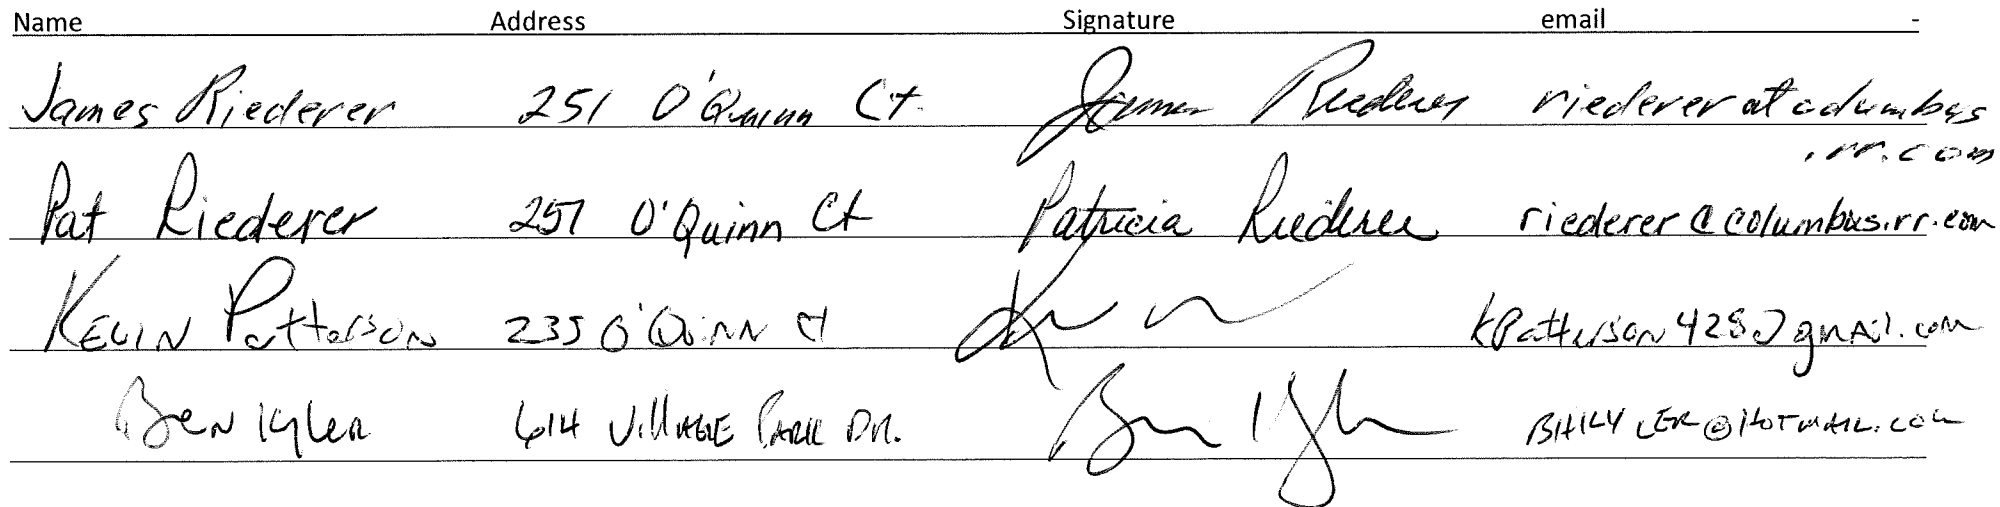 Name Address Signature email -
James Riederer 251 O'Quinn Ct. James Riederer riederer at columbus
.rr.com
Pat Riederer 251 O'Quinn Ct Patricia Riederer riederer@columbus.rr.com
Kevin Patterson 235 O'Quinn Ct KPatterson428@gmail.com
Ben Kyler 614 Village Park Dr. Ben Kyler BHKYLER@HOTMAIL.COM